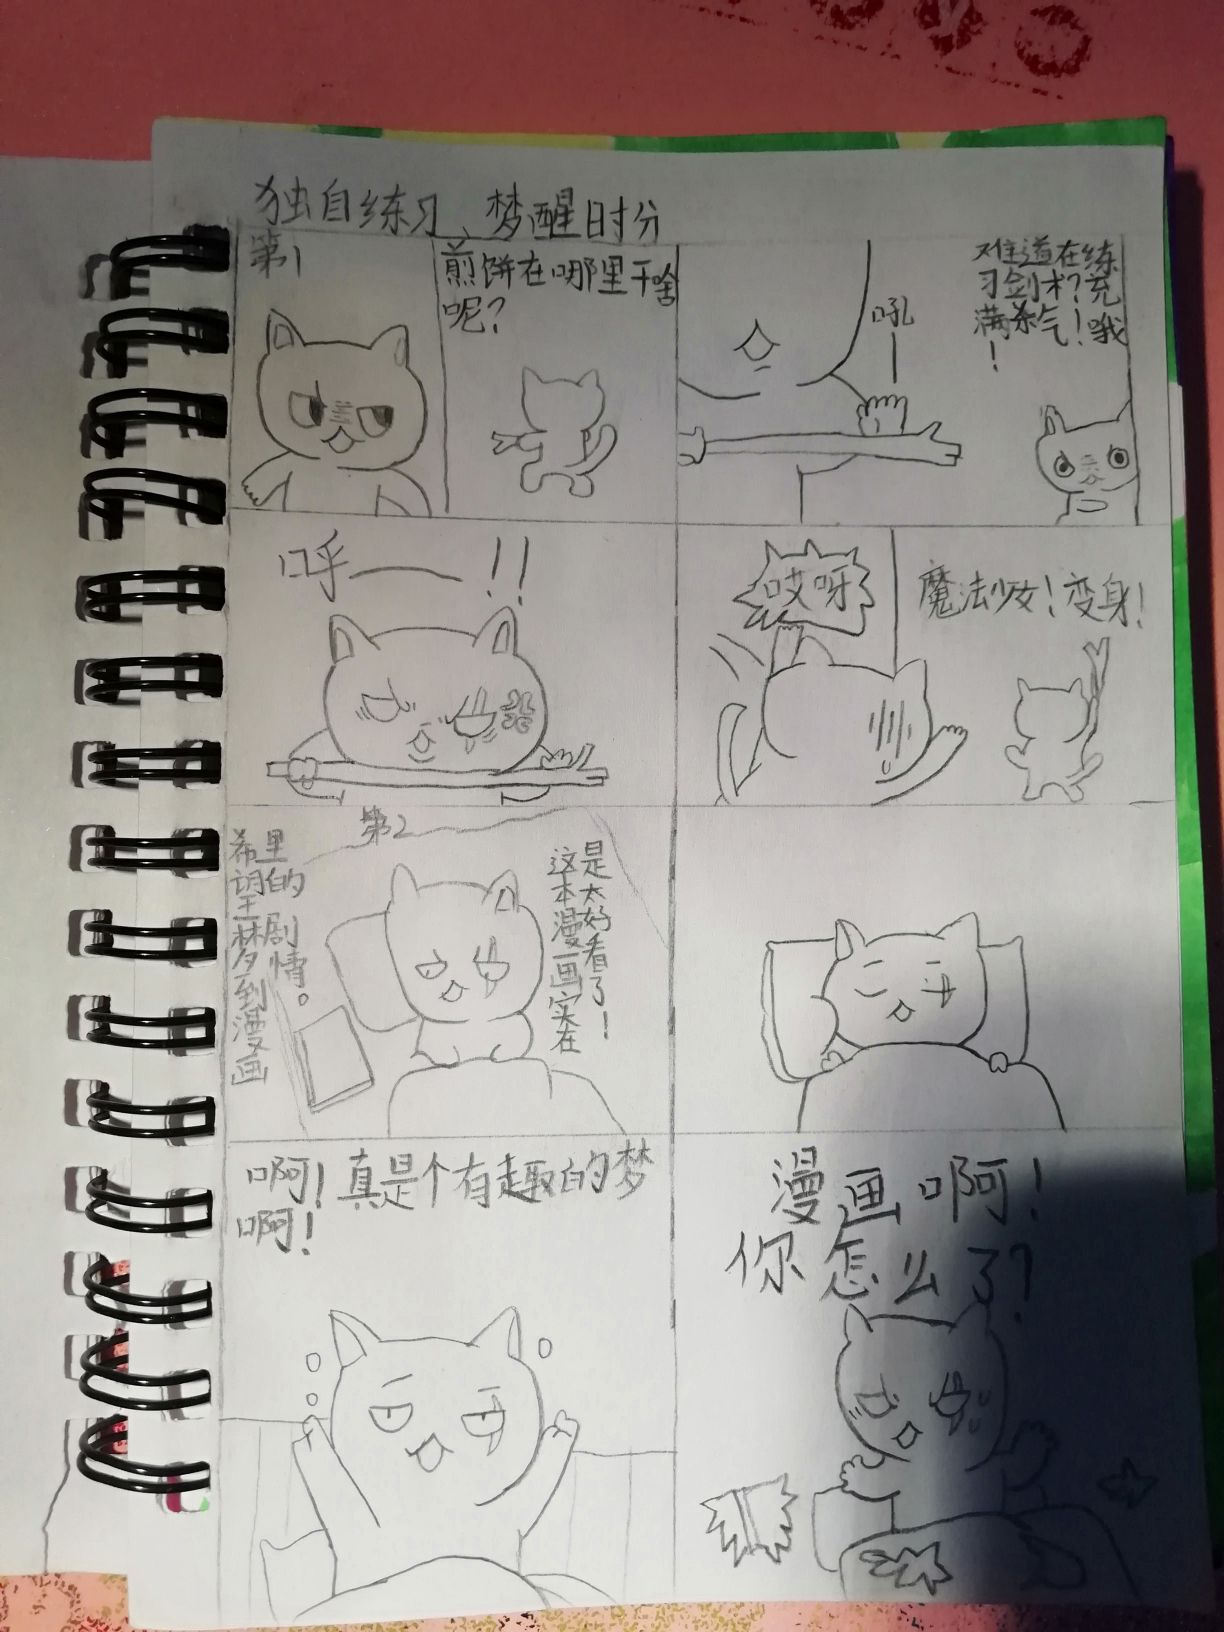 独自练习、梦醒时分
第1
煎饼在哪里干啥
呢?
吼
难道在练
习剑术?充
满杀气!哦
!
呼——!!
哎呀
魔法少女!变身!
第2
这本漫画实在
是太好看了!
希望梦到漫画
里的剧情。
啊!真是个有趣的梦
啊!
漫画啊!
你怎么了?